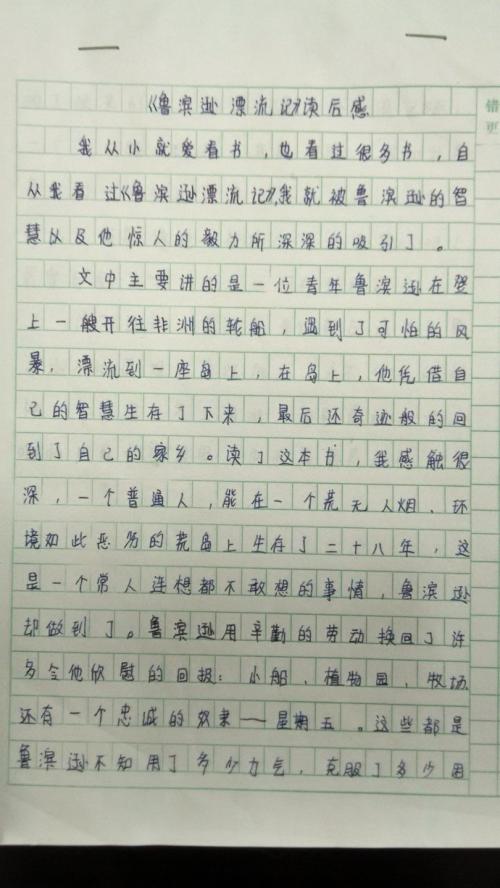 《鲁滨逊漂流记》读后感
我从小就爱看书，也看过很多书，自
从我看过《鲁滨逊漂流记》,我就被鲁滨逊的智
慧以及他惊人的毅力所深深的吸引了。
文中主要讲的是一位青年鲁滨逊在登
上一艘开往非洲的轮船，遇到了可怕的风
暴，漂流到一座岛上，在岛上，他凭借自
己的智慧生存了下来，最后还奇迹般的回
到了自己的家乡。读了这本书，我感触很
深，一个普通人，能在一个荒无人烟、环
境如此恶劣的荒岛上生存了二十八年，这
是一个常人连想都不敢想的事情，鲁滨逊
却做到了。鲁滨逊用辛勤的劳动换回了许
多令他欣慰的回报：小船、植物园、牧场
还有一个忠诚的奴隶——星期五。这些都是
鲁滨逊不知用了多少力气，克服了多少困
错
更